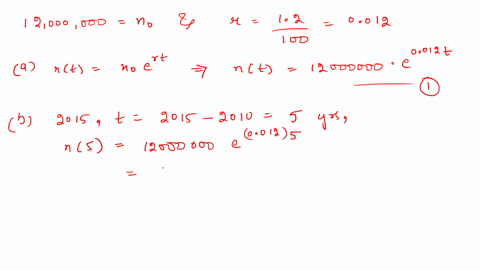 12,000,000 = n₀ & r = 1.2/100 = 0.012
(a) n(t) = n₀ e^{rt} ⇒ n(t) = 12000000 · e^{0.012t}
①
(b) 2015, t = 2015 - 2010 = 5 yrs,
n(5) = 12000000 e^{(0.012)5}
=